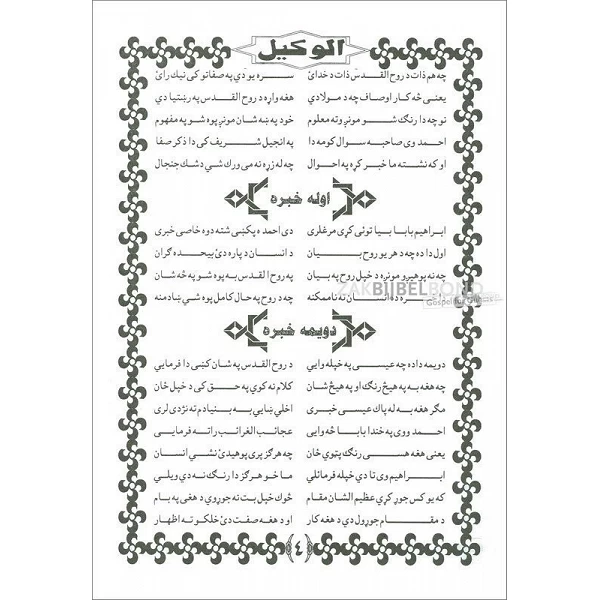 الوکيل
چه هم ذات د روح القدس ذات د خدائ سره يو دي په صفاتو کی نيک رائ
يعنی څه کار اوصاف چه د مولا دي هغه واړه د روح القدس په رښتيا دي
نو چه دا رنگ شو مونږ ته معلوم خود په ښه شان مونږ پوه شو په مفهوم
احمد وی صاحبه سوال کومه دا په انجيل شريف کی دا ذکر صفا
او که نشته ما خبر کړه په احوال چه له زړه نه می ورک شي د شک جنجال
اوله خبره
ابراهيم بابا بيا توئی کړی مرغلری دی احمده پکښی شته دوه خاصی خبری
اول دا ده چه د هر يو روح بيان د انسان د پاره دئ بيحده گران
چه نه پوهيږو مونږه د خپل روح په بيان په روح القدس به پوه شو په څه شان
ده انسان ته ناممکنه چه د روح په حال کامل پوه شي ښاد منه
دويمه خبره
دويمه دا ده چه عيسی په خپله وايي د روح القدس په شان کښی دا فرمايي
چه هغه به په هيڅ رنگ او په هيڅ شان کلام نه کوي په حق کی د خپل ځان
مگر هغه به له پاک عيسی خبری اخلي ښايي به بنيادم ته نژدی لری
احمد ووی په خندا بابا څه وايی عجائب الغرائب راته فرمايی
يعنی هغه هسی رنگ پټوي ځان چه هرگز پری پوهيدئ نشي انسان
ابراهيم وی تا دی خپله فرمائلي ما خو هرگز دا رنگ نه دي ويلي
که يو کس جوړ کړي عظيم الشان مقام څوک خپل بت نه جوړوي د هغی په بام
د مقام جوړول دي د هغه کار او د هغه صفت دئ خلکو ته اظهار
ZAKBIJBELBOND
(٤)